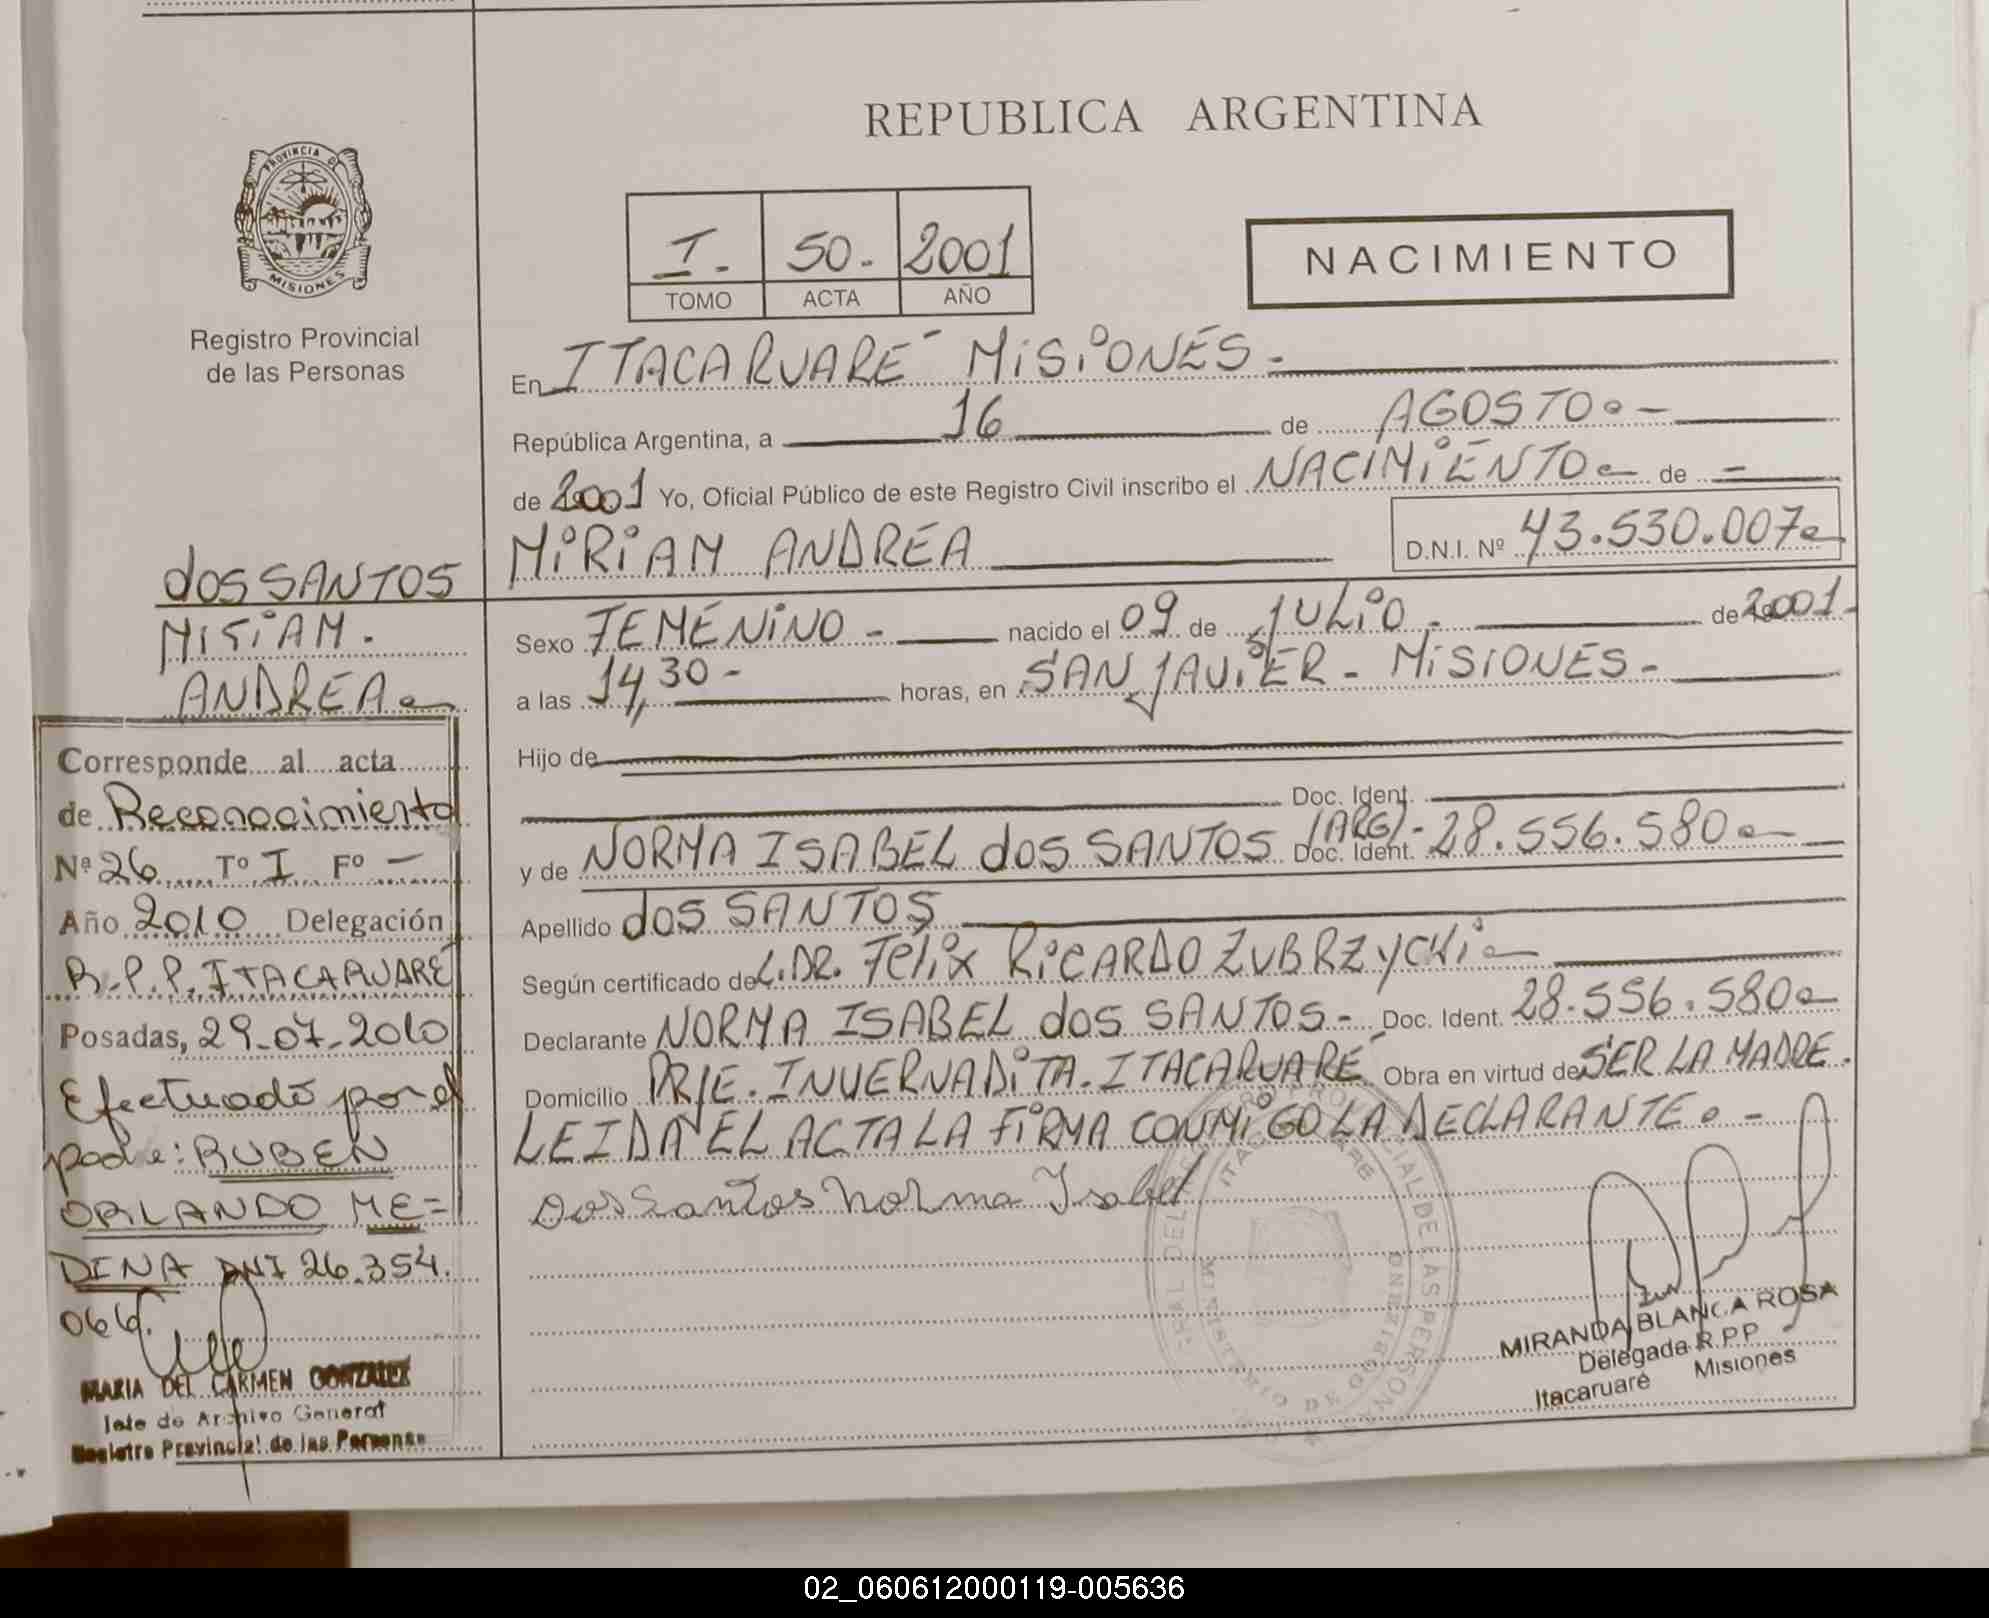 REPUBLICA ARGENTINA
PROVINCIA DE
MISIONES
Registro Provincial
de las Personas
I. 50. 2001
TOMO ACTA AÑO
NACIMIENTO
En ITACARUARÉ MISIONES.-
República Argentina, a 16 de AGOSTO.-
de 2001 Yo, Oficial Público de este Registro Civil inscribo el NACIMIENTO de -
MIRIAM ANDREA D.N.I. Nº 43.530.007
Sexo FEMENINO - nacido el 09 de JULIO - de 2001.-
a las 14,30 - horas, en SAN JAVIER - MISIONES -
Hijo de
Doc. Ident.
y de NORMA ISABEL dos SANTOS Doc. Ident. (ARG)- 28.556.580
Apellido dos SANTOS
Según certificado de L.DR. Felix RICARDO ZUBRZYCKI
Declarante NORMA ISABEL dos SANTOS - Doc. Ident. 28.556.580
Domicilio PRJE. INVERNADITA. ITACARUARÉ Obra en virtud de SER LA MADRE.
LEIDA EL ACTA LA FIRMA CONMIGO LA DECLARANTE. -
Dos Santos Norma Isabel
MIRANDA BLANCA ROSA
Delegada R.P.P.
Itacaruaré Misiones
dos SANTOS
MIRIAM.
ANDREA
Corresponde al acta
de Reconocimiento
Nº 26 Tº I Fº -
Año 2010 Delegación
R.P.P. ITACARUARÉ
Posadas, 29-07-2010
Efectuado por el
padre: RUBEN
ORLANDO ME=
DINA DNI 26.354.
066.
MARIA DEL CARMEN GONZALEZ
Jefe de Archivo General
Registro Provincial de las Personas
02_060612000119-005636